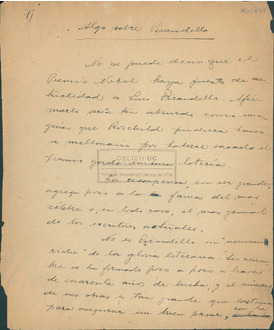 Algo sobre Pirandello
No se puede decir que el
Premio Nobel haya puesto de ac-
tualidad a Luis Pirandello. Afir-
marlo sería tan absurdo como una
que Roschild pudiera hacer-
se millonario por haberse sacado el
premio gordo lotería
CELICH UC
La recompensa, con ser grande,
agrega poco a la fama del mas
célebre o, en todo caso, el mas genial
de los escritores actuales.
No es Pirandello un "nuevo
rico" de la gloria literaria. Su nom-
bre se ha formado poco a poco a traves
de cuarenta años de lucha, y el número
de sus obras es tan grande que bastaría
para asegurar un buen pasar,